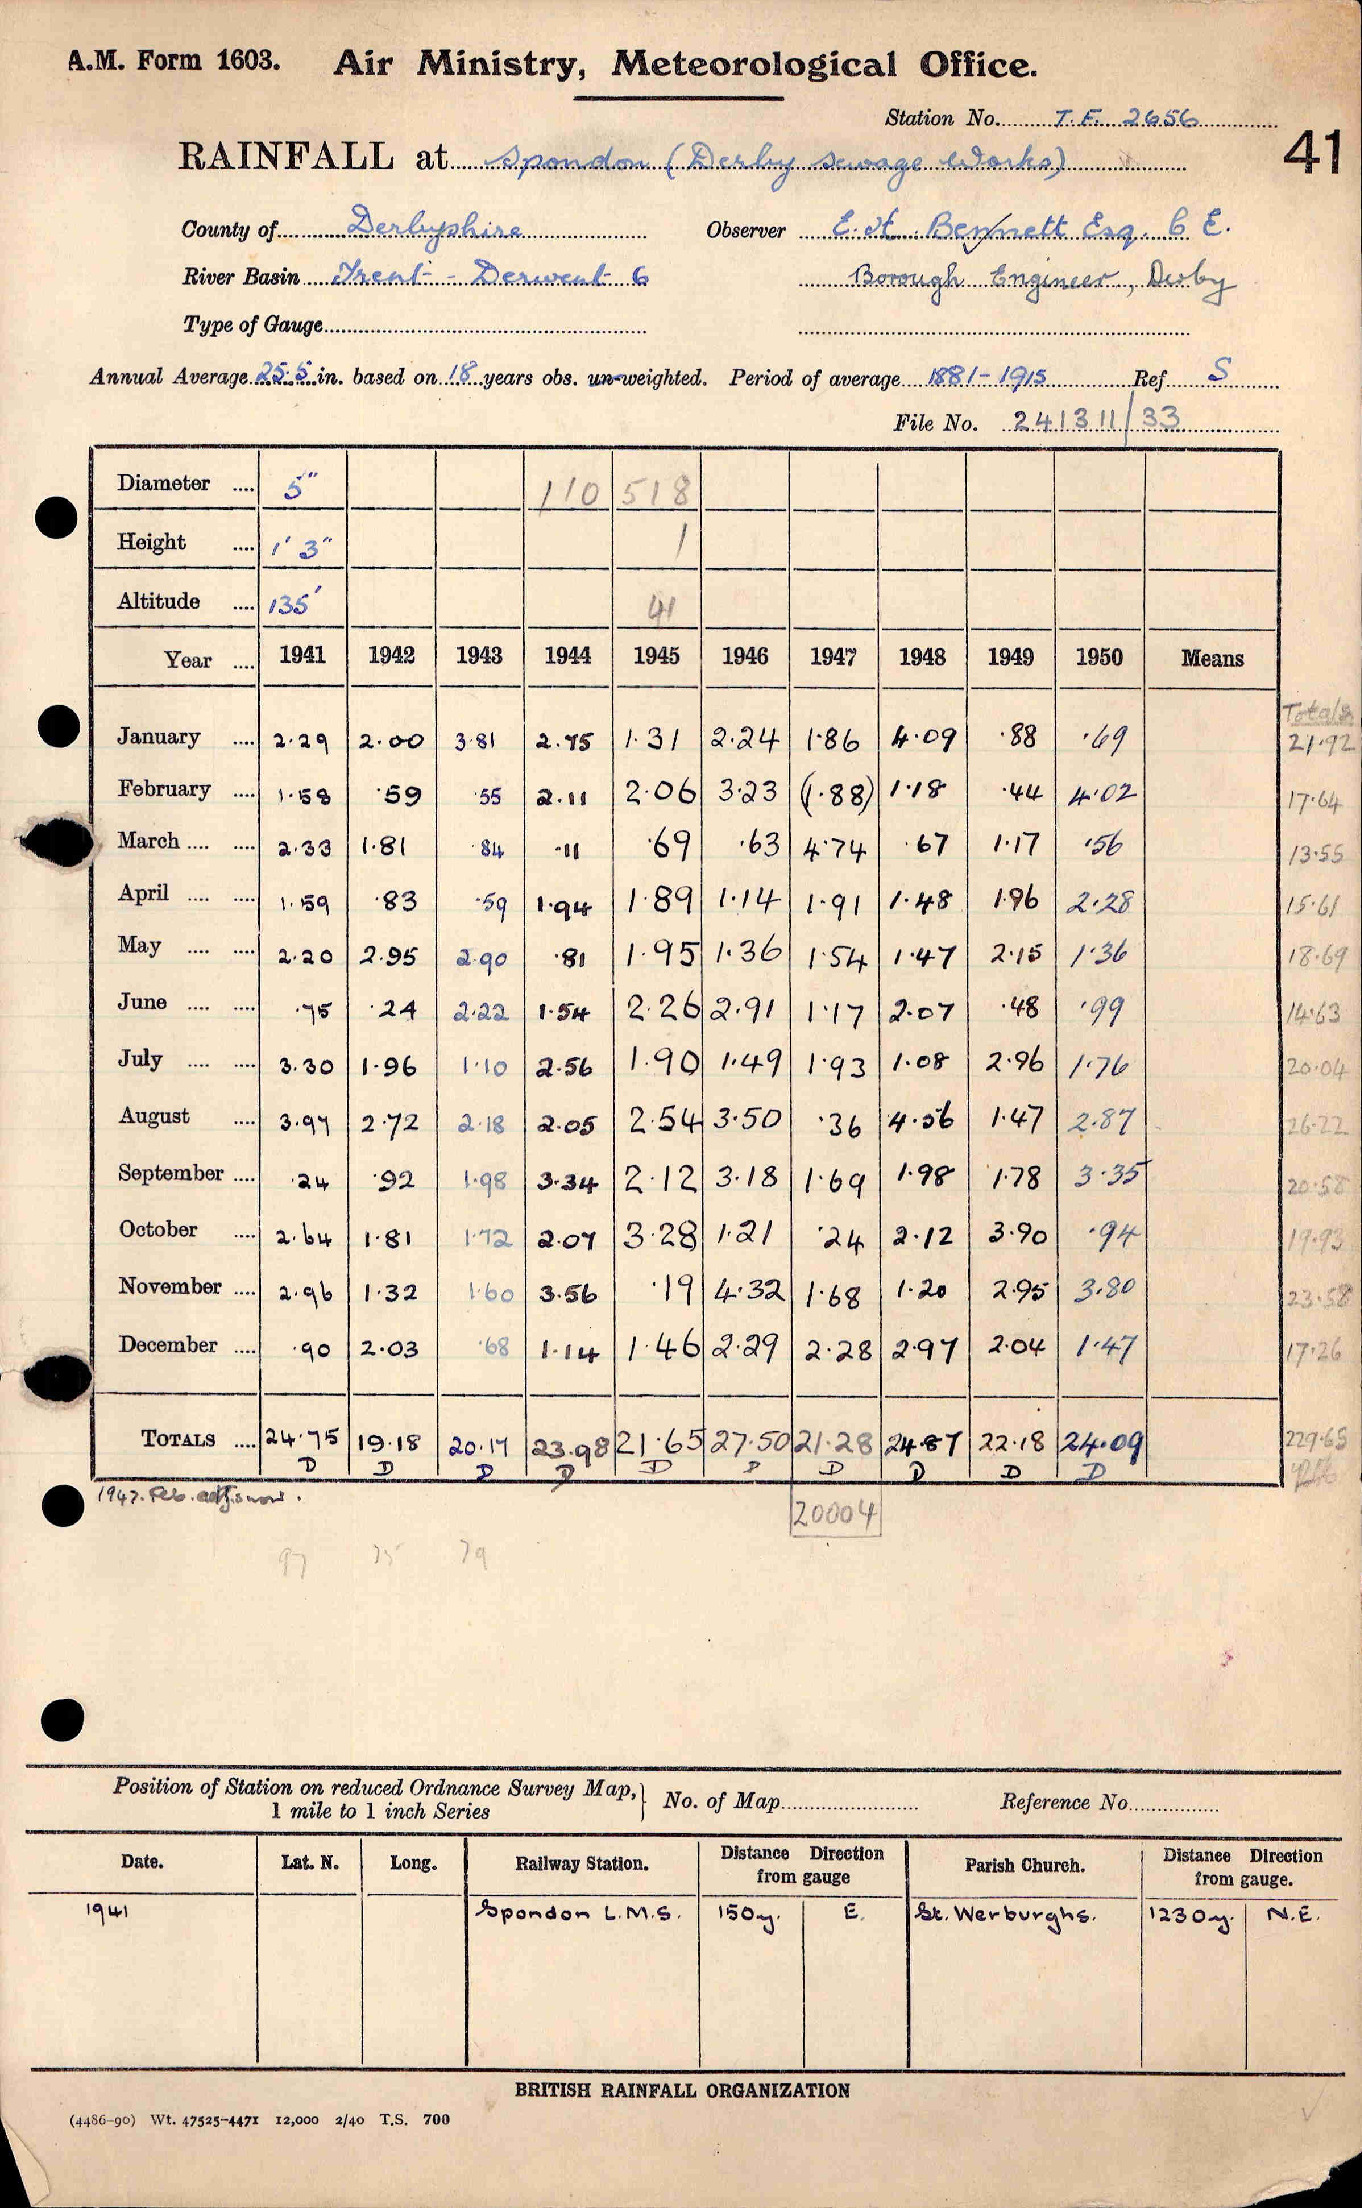 A.M. Form 1603. Air Ministry, Meteorological Office.
Station No. T.F. 2656
41
RAINFALL at Spondon (Derby Sewage Works)
County of Derbyshire Observer E. H. Bennett Esq. C E.
River Basin Trent - Derwent 6 Borough Engineer, Derby
Type of Gauge
Annual Average 25.5 in. based on 18 years obs. un-weighted. Period of average 1881-1915 Ref S
File No. 241311/33
Diameter .... 5" 110 518
Height .... 1' 3" 1
Altitude .... 135' 41
Year .... 1941 1942 1943 1944 1945 1946 1947 1948 1949 1950 Means
Totals
January .... 2.29 2.00 3.81 2.75 1.31 2.24 1.86 4.09 .88 .69 21.92
February .... 1.58 .59 .55 2.11 2.06 3.23 (1.88) 1.18 .44 4.02 17.64
March .... .... 2.33 1.81 .84 .11 .69 .63 4.74 .67 1.17 .56 13.55
April .... .... 1.59 .83 .59 1.94 1.89 1.14 1.91 1.48 1.96 2.28 15.61
May .... .... 2.20 2.95 2.90 .81 1.95 1.36 1.54 1.47 2.15 1.36 18.69
June .... .... .75 .24 2.22 1.54 2.26 2.91 1.17 2.07 .48 .99 14.63
July .... .... 3.30 1.96 1.10 2.56 1.90 1.49 1.93 1.08 2.96 1.76 20.04
August .... 3.97 2.72 2.18 2.05 2.54 3.50 .36 4.56 1.47 2.87 26.22
September .... .24 .92 1.98 3.34 2.12 3.18 1.69 1.98 1.78 3.35 20.58
October .... 2.64 1.81 1.72 2.07 3.28 1.21 .24 2.12 3.90 .94 19.93
November .... 2.96 1.32 1.60 3.56 .19 4.32 1.68 1.20 2.95 3.80 23.58
December .... .90 2.03 .68 1.14 1.46 2.29 2.28 2.97 2.04 1.47 17.26
TOTALS .... 24.75 19.18 20.17 23.98 21.65 27.50 21.28 24.87 22.18 24.09 229.65
D D D D D D D D D D
1947. Feb. adj. snow.
20004
97 75 79
Position of Station on reduced Ordnance Survey Map, } No. of Map Reference No.
1 mile to 1 inch Series
Date. Lat. N. Long. Railway Station. Distance Direction from gauge Parish Church. Distance Direction from gauge.
1941 Spondon L.M.S. 150y. E. St. Werburghs. 1230y. N.E.
BRITISH RAINFALL ORGANIZATION
(4486-90) Wt. 47525-4471 12,000 2/40 T.S. 700